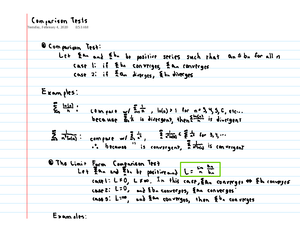 Comparison Tests
Tuesday, February 6, 2018
① Comparison Test:
Let Σan and Σbn be positive series such that an ≤ bn for all n
case 1: if Σbn converges, Σan converges
case 2: if Σan diverges, Σbn diverges
Examples:
compare w/ Σ 1/n , ln(n) > 1 for n = 3, 4, 5, 6, etc...
because Σ 1/n is divergent, then Σ ln(n)/n is divergent
compare w/
because is convergent, is convergent
② The Limit Form Comparison Test
Let Σan and Σbn be positive and L = lim an/bn
case 1: L≠0, L≠∞. In this case, Σan converges ⇔ Σbn converges
case 2: L=0, and Σbn converges, Σan converges
case 3: L=∞, and Σan converges, then Σbn converges
Examples: